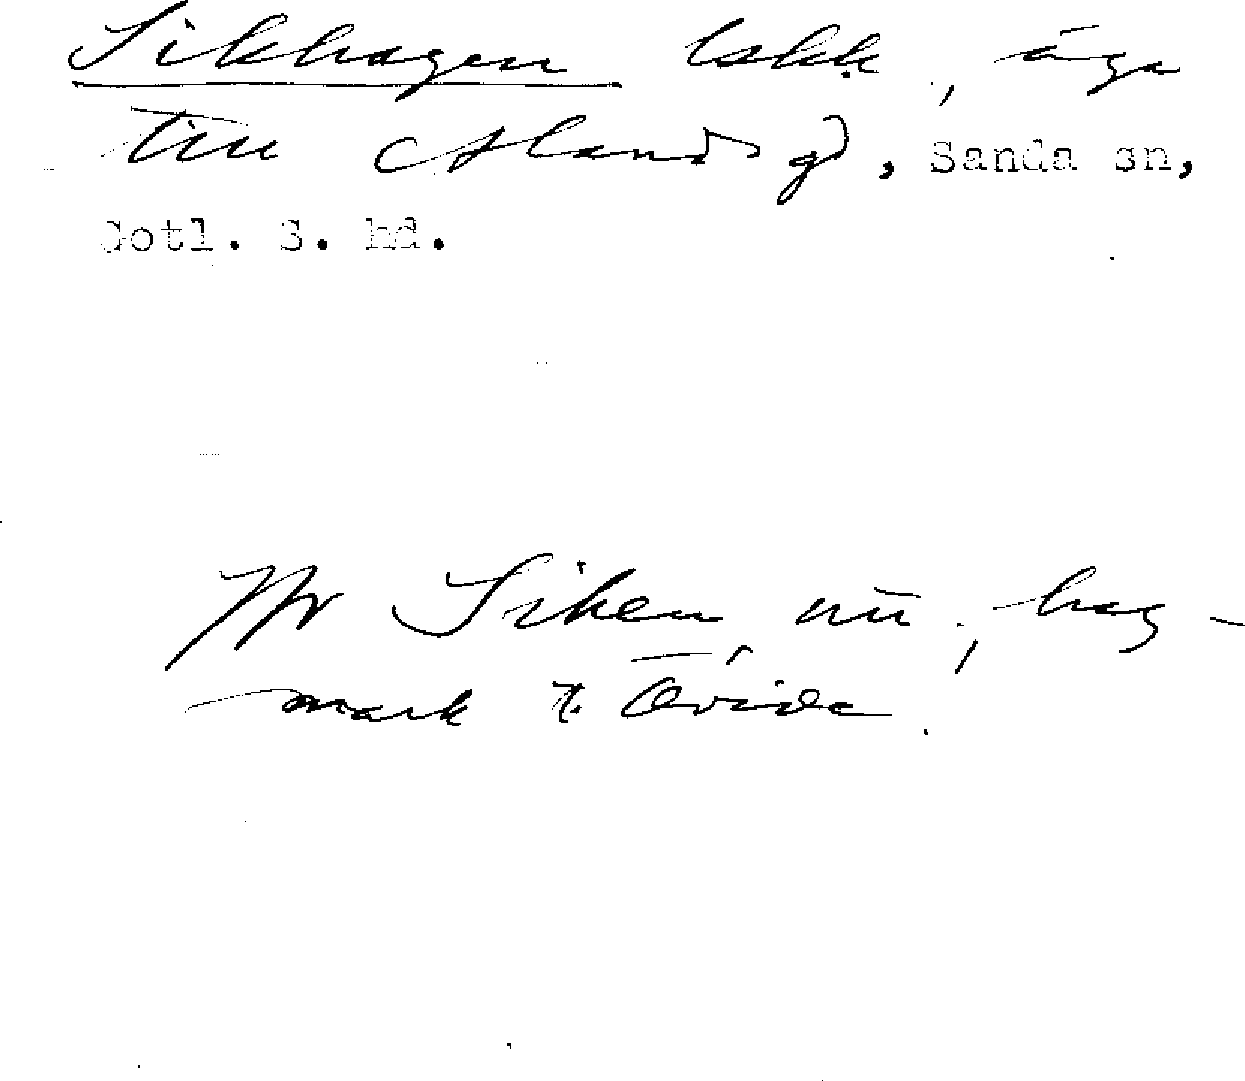 Sikhagen bskk, äga
till Alands gd, Sanda sn,
Gotl. S. hd.
Jfr Siken, nu, hag-
mark t. Övide.